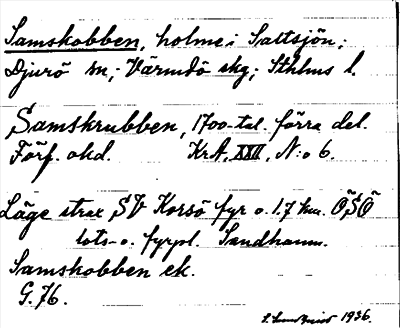 Samskobben, holme i Saltsjön;
Djurö sn; Värmdö skg; Sthlms l.
Samskrubben, 1700-tal. förra del.
Förf. okd. KrA, XXII, N:o 6.
Läge strax SV Korsö fyr o. 1.7 km. ÖSÖ
lots- o. fyrpl. Sandhamn.
Samskobben ek.
G. 76.
1936.